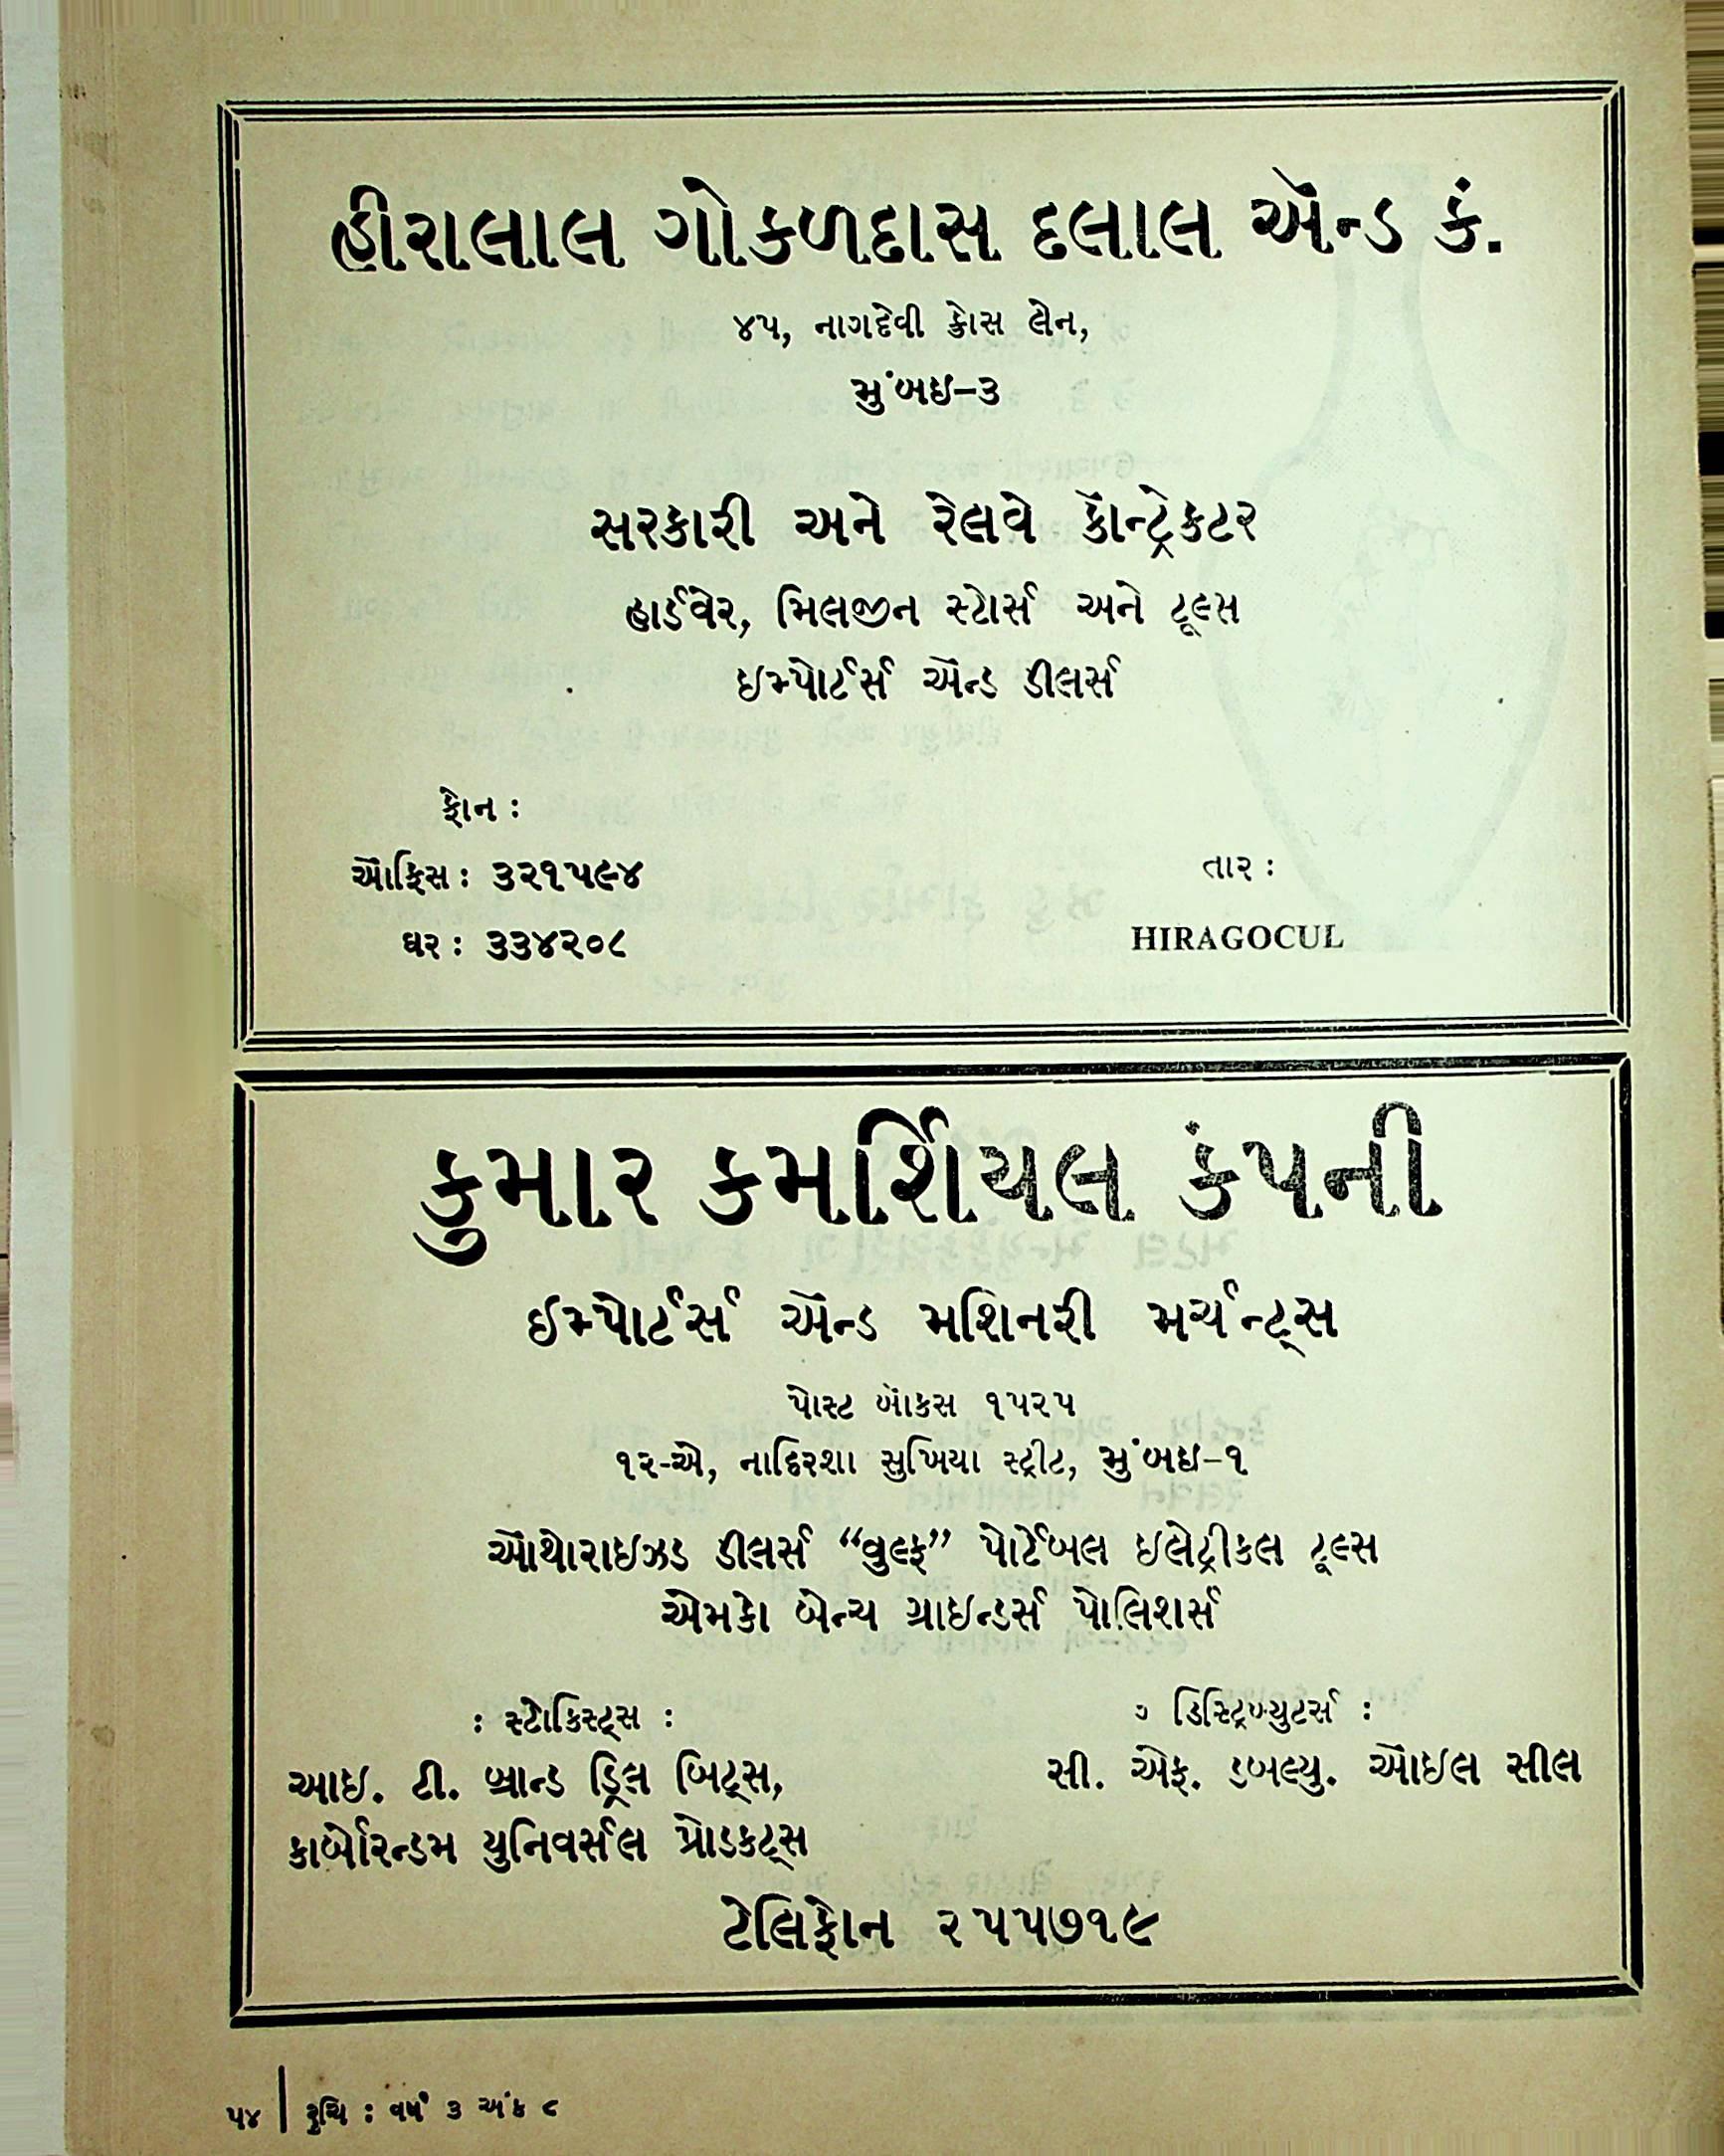 હીરાલાલ ગોકળદાસ દલાલ ઍન્ડ કં.
૪૫, નાગદેવી ક્રોસ લેન,
મુંબઇ-૩
સરકારી અને રેલવે કૉન્ટ્રેકટર
હાર્ડવેર, મિલજીન સ્ટોર્સ અને ટૂલ્સ
ઇમ્પોર્ટર્સ ઍન્ડ ડીલર્સ
ફોન :
ઑફિસ : ૩૨૧૫૯૪
ઘર : ૩૩૪૨૦૮
તાર :
HIRAGOCUL
કુમાર કમર્શિયલ કંપની
ઈમ્પોર્ટર્સ ઍન્ડ મશિનરી મર્ચન્ટ્સ
પોસ્ટ બૉક્સ ૧૫૨૫
૧૨-એ, નાદિરશા સુખિયા સ્ટ્રીટ, મુંબઇ-૧
ઑથોરાઇઝડ ડીલર્સ “વુલ્ફ” પોર્ટેબલ ઇલેટ્રીકલ ટૂલ્સ
એમકો બેન્ચ ગ્રાઇન્ડર્સ પોલિશર્સ
: સ્ટોકિસ્ટ્સ :
આઇ. ટી. બ્રાન્ડ ડ્રિલ બિટ્સ,
કાર્બોરન્ડમ યુનિવર્સલ પ્રોડકટ્સ
: ડિસ્ટ્રિબ્યુટર્સ :
સી. એફ. ડબલ્યુ. ઑઇલ સીલ
ટેલિફોન ૨૫૫૭૧૯
૫૪ | રુચિ : વર્ષ ૩ અંક ૮